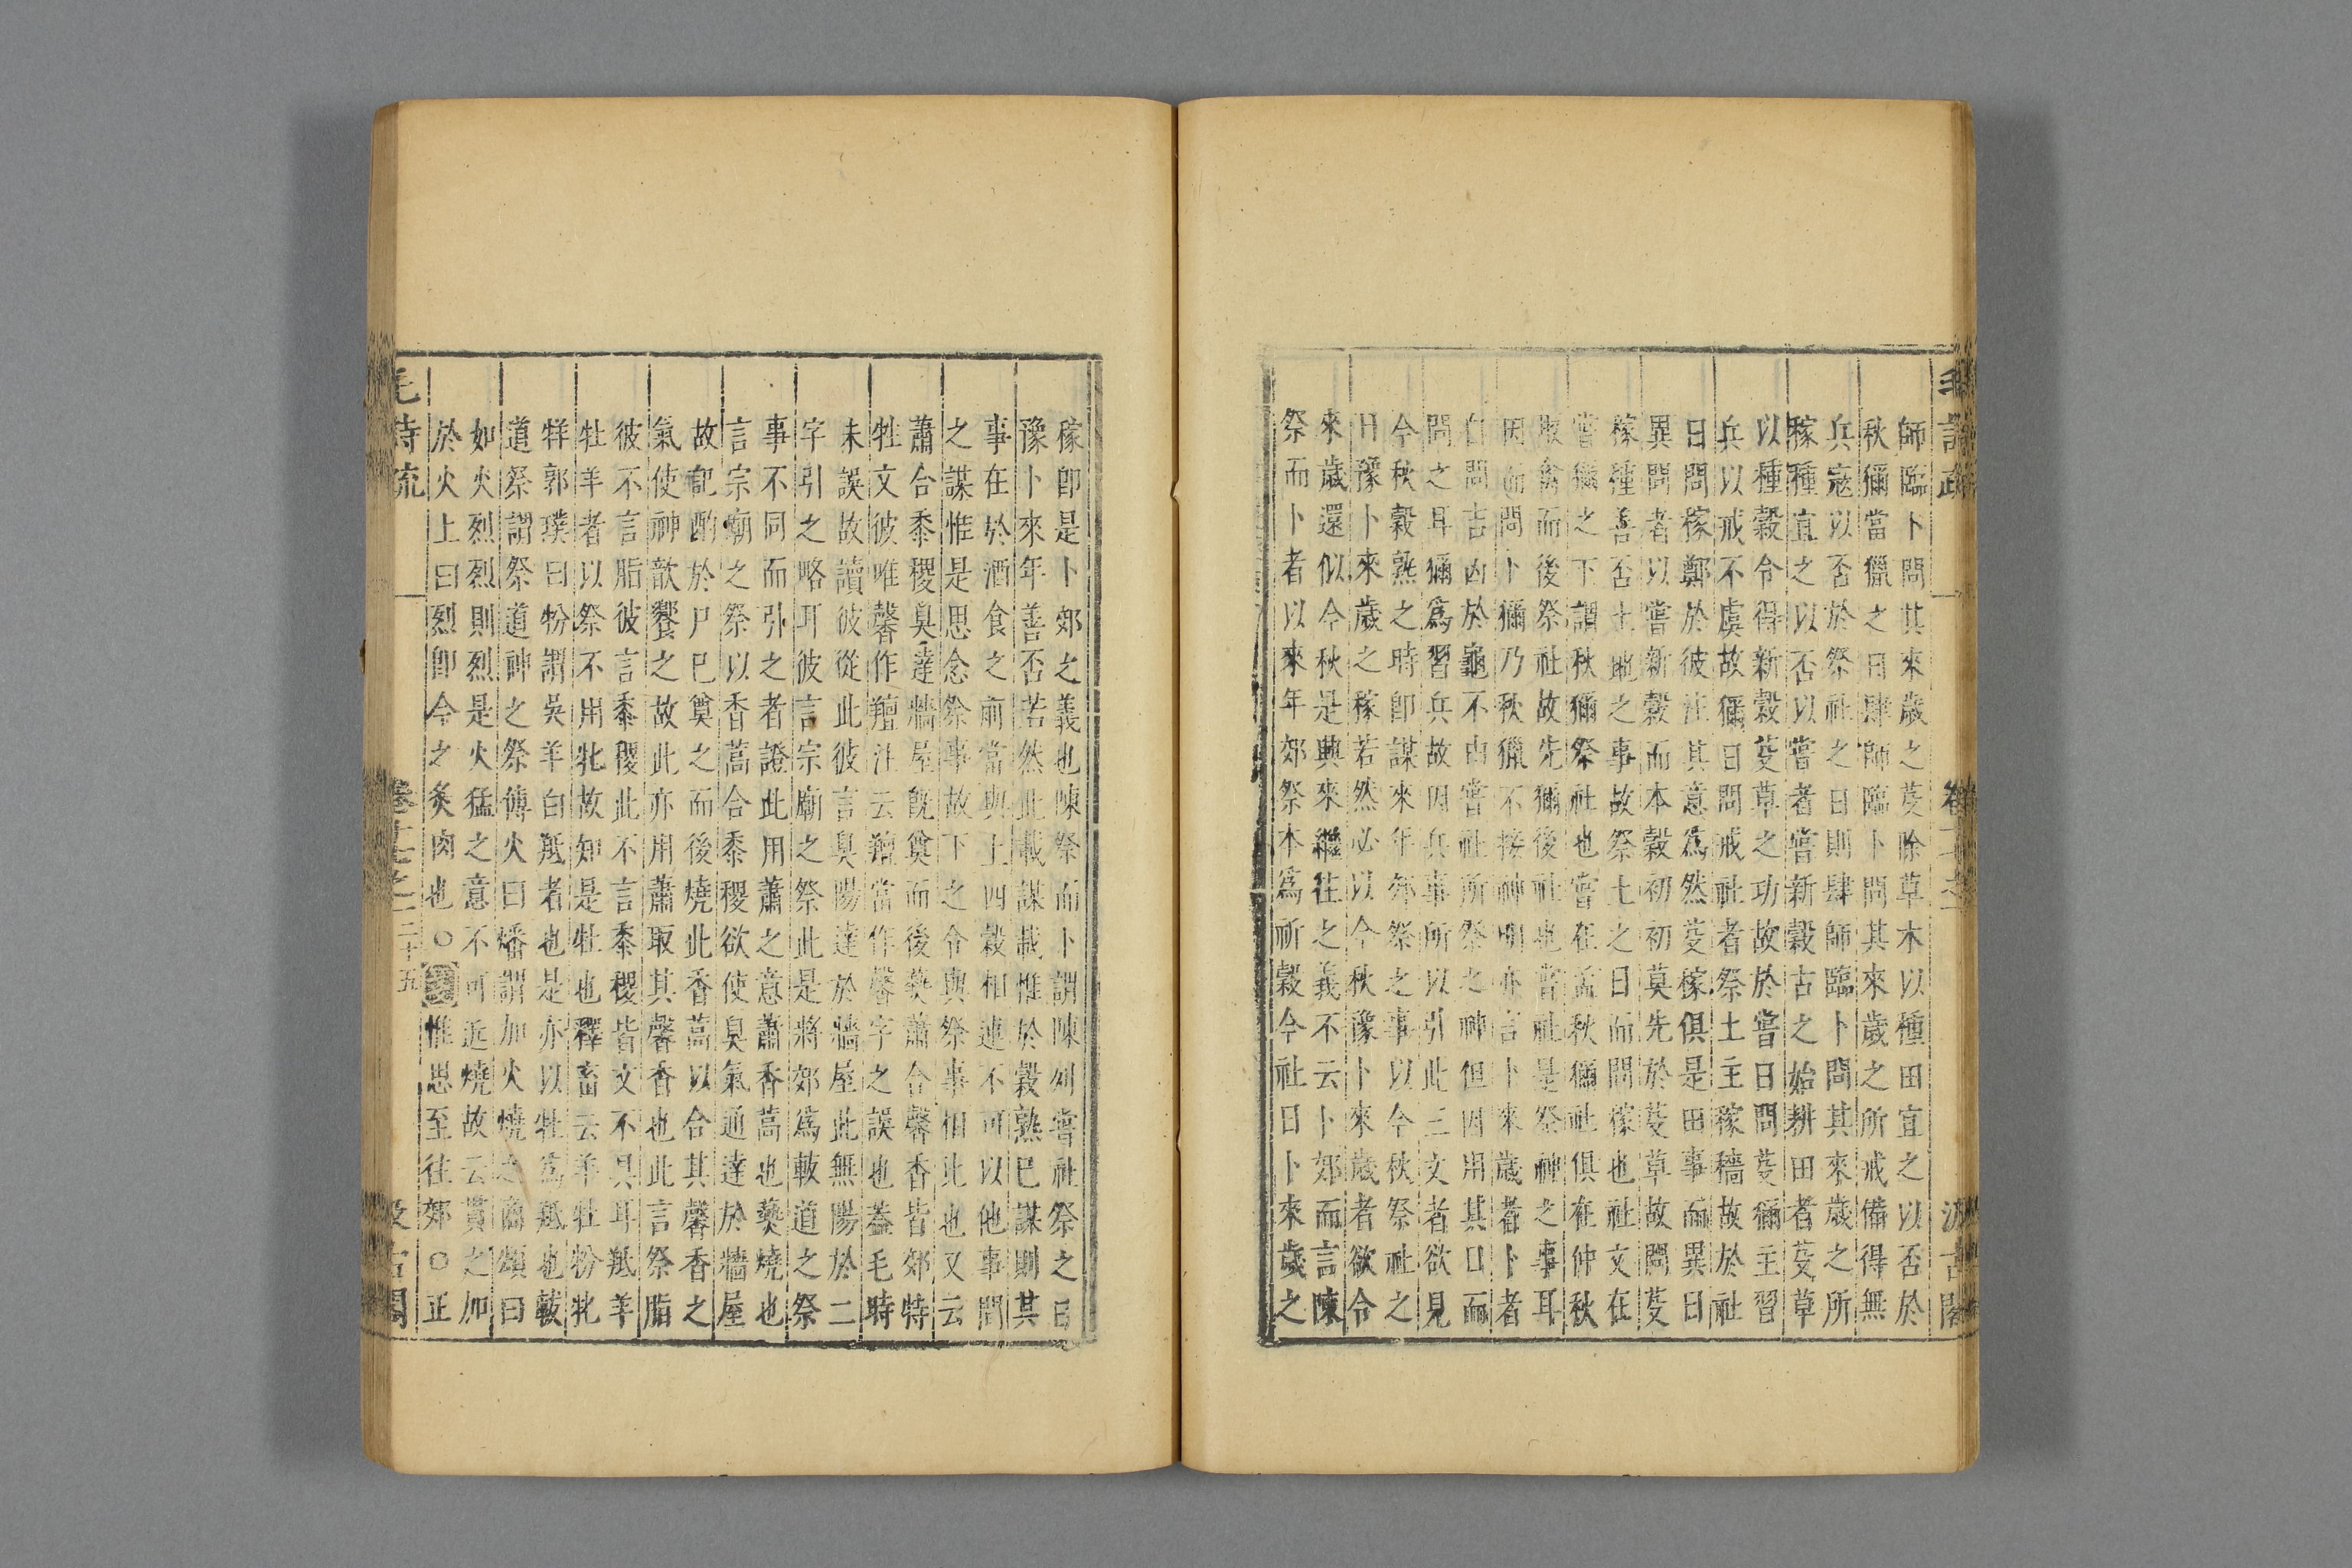 毛詩疏 卷十七之一 汲古閣
師臨卜問其來歲之芟除草木以種田宜之以否於
秋獮當獵之日肆師臨卜問其來歲之所戒備得無
兵寇以否於祭社之日則肆師臨卜問其來歲之所
稼種宜之以否以嘗者嘗新穀古之始耕田者芟草
以種穀令得新穀芟草之功故於嘗日問芟獮主習
兵以戒不虞故獮日問戒社者祭土主稼穡故於社
日問稼鄭於彼注其意爲然芟稼俱是田事而異日
異問者以嘗新穀而本穀初初莫先於芟草故問芟
稼種善否土地之事故祭土之日而問稼也社文在
嘗獮之下謂秋獮祭社也嘗在孟秋獮社俱在仲秋
取禽而後祭社故先獮後社也嘗社是祭神之事耳
因而問卜獮乃秋獵不接神明亦言卜來歲者卜者
自問吉凶於龜不由嘗社所祭之神但因用其日而
問之耳獮爲習兵故因兵事所以引此三文者欲見
今秋穀熟之時卽謀來年郊祭之事以今秋祭社之
日豫卜來歲之稼若然必以今秋豫卜來歲者欲令
來歲還似今秋是與來繼往之義不云卜郊而言陳
祭而卜者以來年郊祭本爲祈穀今社日卜來歲之
稼卽是卜郊之義也陳祭而卜謂陳列嘗社祭之日
豫卜來年善否若然此載謀載惟於穀熟已謀則其
事在於酒食之前當與上四穀相連不可以他事間
之謀惟是思念祭事故下之令與祭事相比也又云
蕭合黍稷臭達牆屋旣奠而後爇蕭合馨香皆郊特
牲文彼唯馨作羶注云羶當作馨字之誤也蓋毛時
未誤故讀彼從此彼言臭陽達於牆屋此無陽於二
字引之略耳彼言宗廟之祭此是將郊爲軷道之祭
事不同而引之者證此用蕭之意蕭香蒿也爇燒也
言宗廟之祭以香蒿合黍稷欲使臭氣通達於牆屋
故記酌於尸已奠之而後燒此香蒿以合其馨香之
氣使神歆饗之故此亦用蕭取其馨香也此言祭脂
彼不言脂彼言黍稷此不言黍稷皆文不具耳羝羊
牡羊者以祭不用牝故知是牡也釋畜云羊牡羒牝
牂郭璞曰羒謂吳羊白羝者也是亦以牡爲羝也軷
道祭謂祭道神之祭傅火曰燔謂加火燒之商頌曰
如火烈烈則烈是火猛之意不可近燒故云貫之加
於火上曰烈卽今之炙肉也○惟思至往郊○正
毛詩疏 卷十七之一 二十五 汲古閣